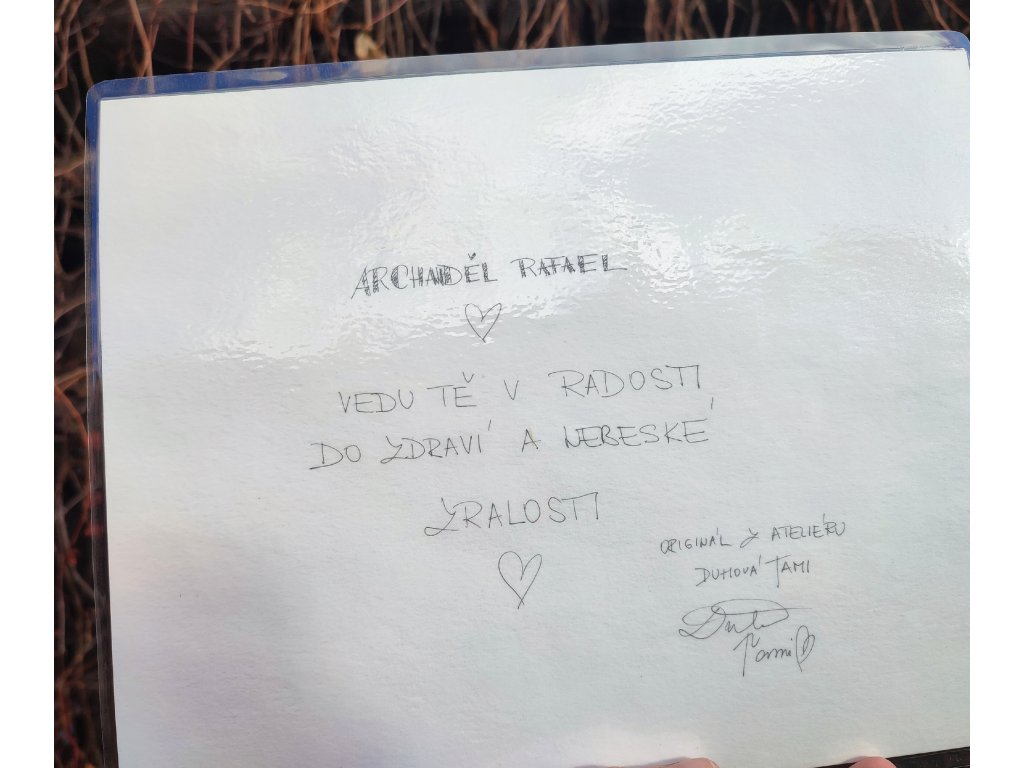 ARCHANDĚL RAFAEL
VEDU TĚ V RADOSTI
DO ZDRAVÍ A NEBESKÉ
ZRALOSTI
ORIGINÁL Z ATELIÉRU
DUHOVÁ TAMI
Tami